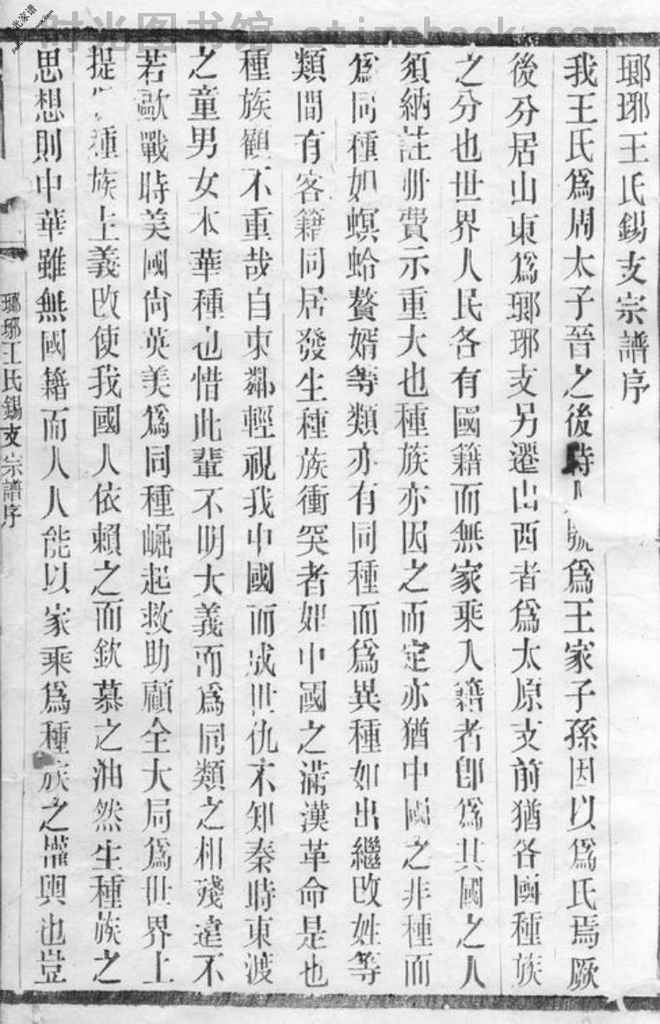 时光图书馆 - atimebook.com
瑯琊王氏錫支宗譜序
我王氏爲周太子晉之後時號爲王家子孫因以爲氏焉厥
後分居山東爲瑯琊支另遷山西者爲太原支前猶各國種族
之分也世界人民各有國籍而無家乘入籍者卽爲其國之人
須納註册費示重大也種族亦因之而定亦猶中國之非種而
爲同種如螟蛉贅婿等類亦有同種而爲異種如出繼改姓等
類間有客籍同居發生種族衝突者如中國之滿漢革命是也
種族觀不重哉自東鄰輕視我中國而成世仇不知秦時東渡
之童男女本華種也惜此輩不明大義而爲同類之相殘違不
若歐戰時美國尙英美爲同種崛起救助顧全大局爲世界上
提 種族主義改使我國人依賴之而欽慕之油然生種族之
思想則中華雖無國籍而人人能以家乘爲種族之權輿也豈
瑯琊王氏錫支宗譜序